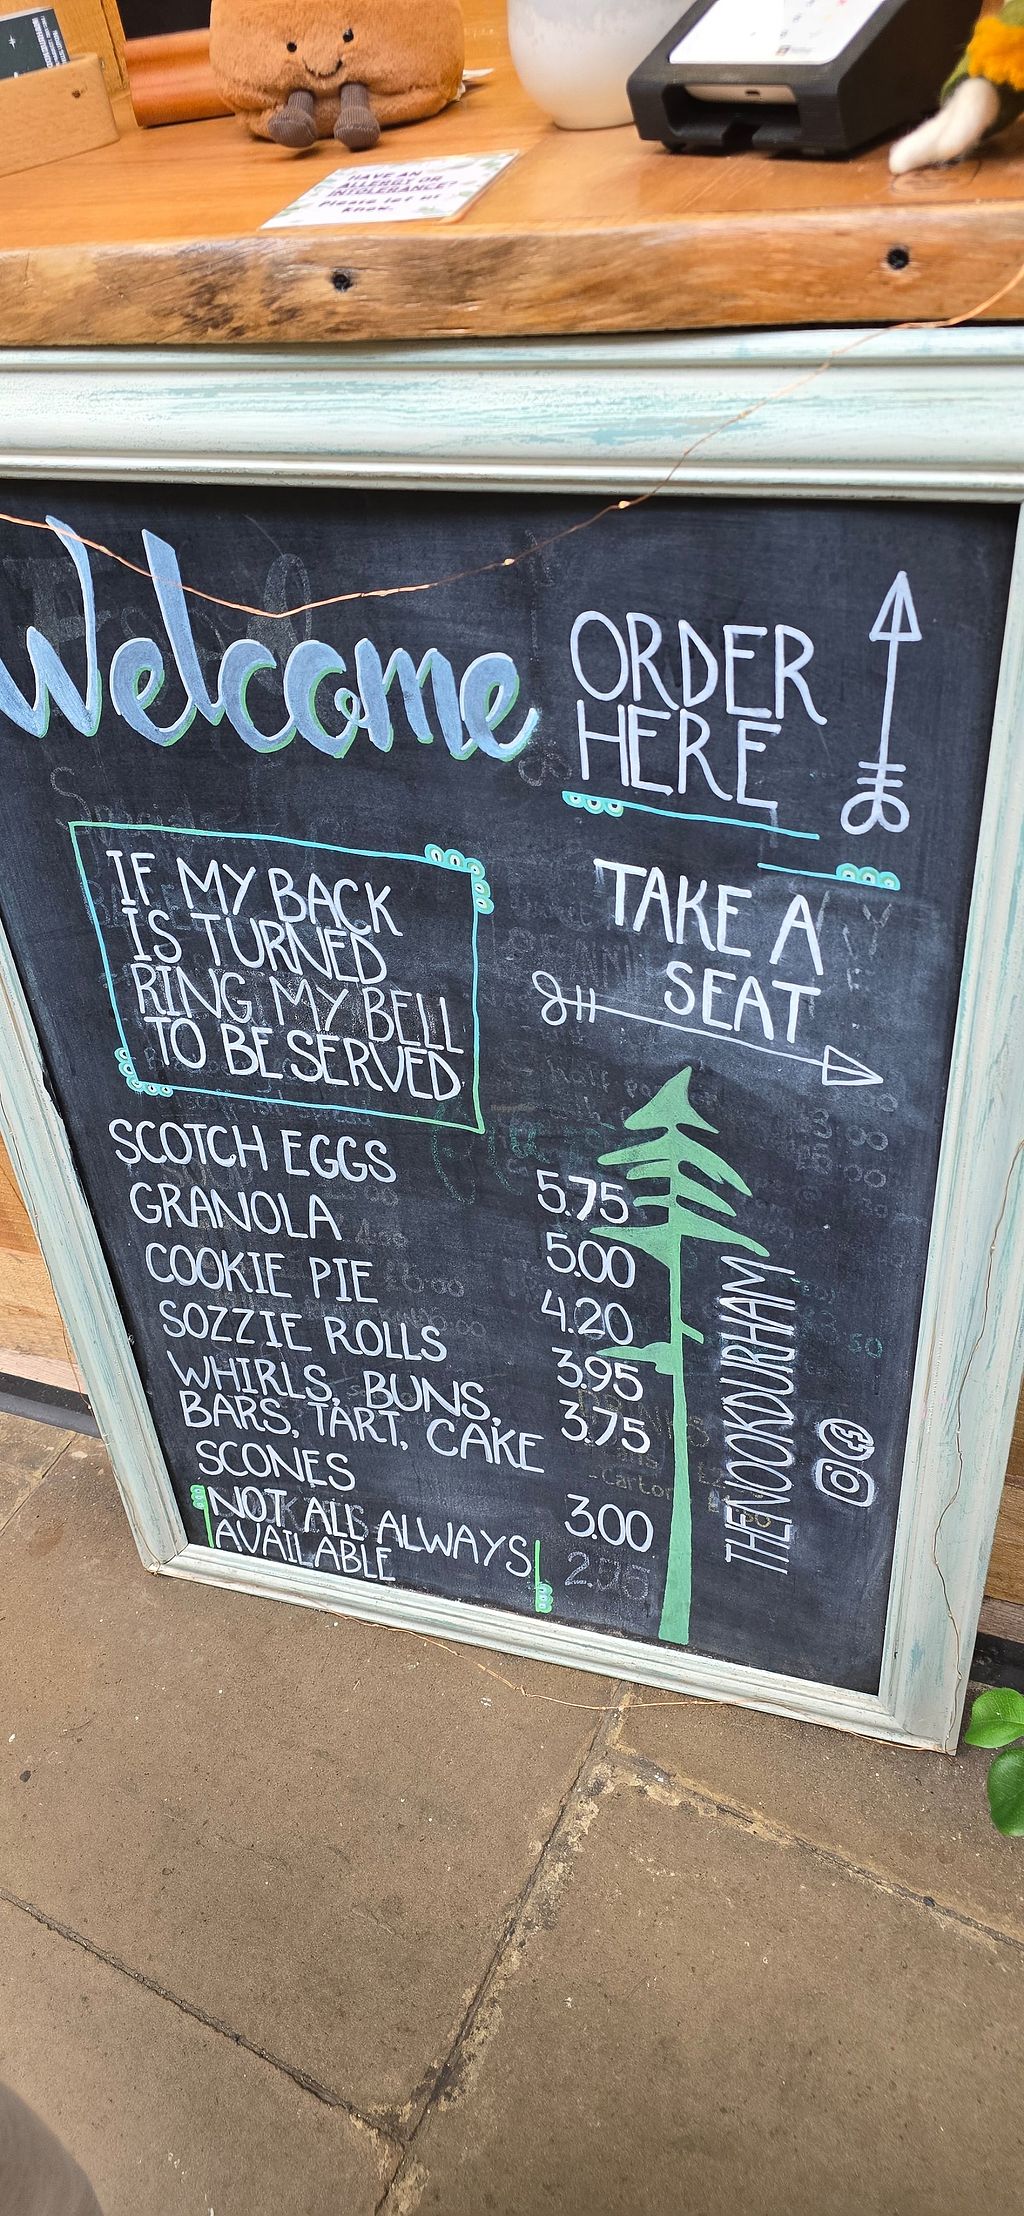 HAVE AN
ALLERGY OR
INTOLERANCE?
Please let us
know.
Welcome
ORDER
HERE
IF MY BACK
IS TURNED
RING MY BELL
TO BE SERVED
TAKE A
SEAT
SCOTCH EGGS 5.75
GRANOLA 5.00
COOKIE PIE 4.20
SOZZIE ROLLS 3.95
WHIRLS, BUNS, 3.75
BARS, TART, CAKE
SCONES 3.00
NOT ALL ALWAYS
AVAILABLE
THENOOKDURHAM